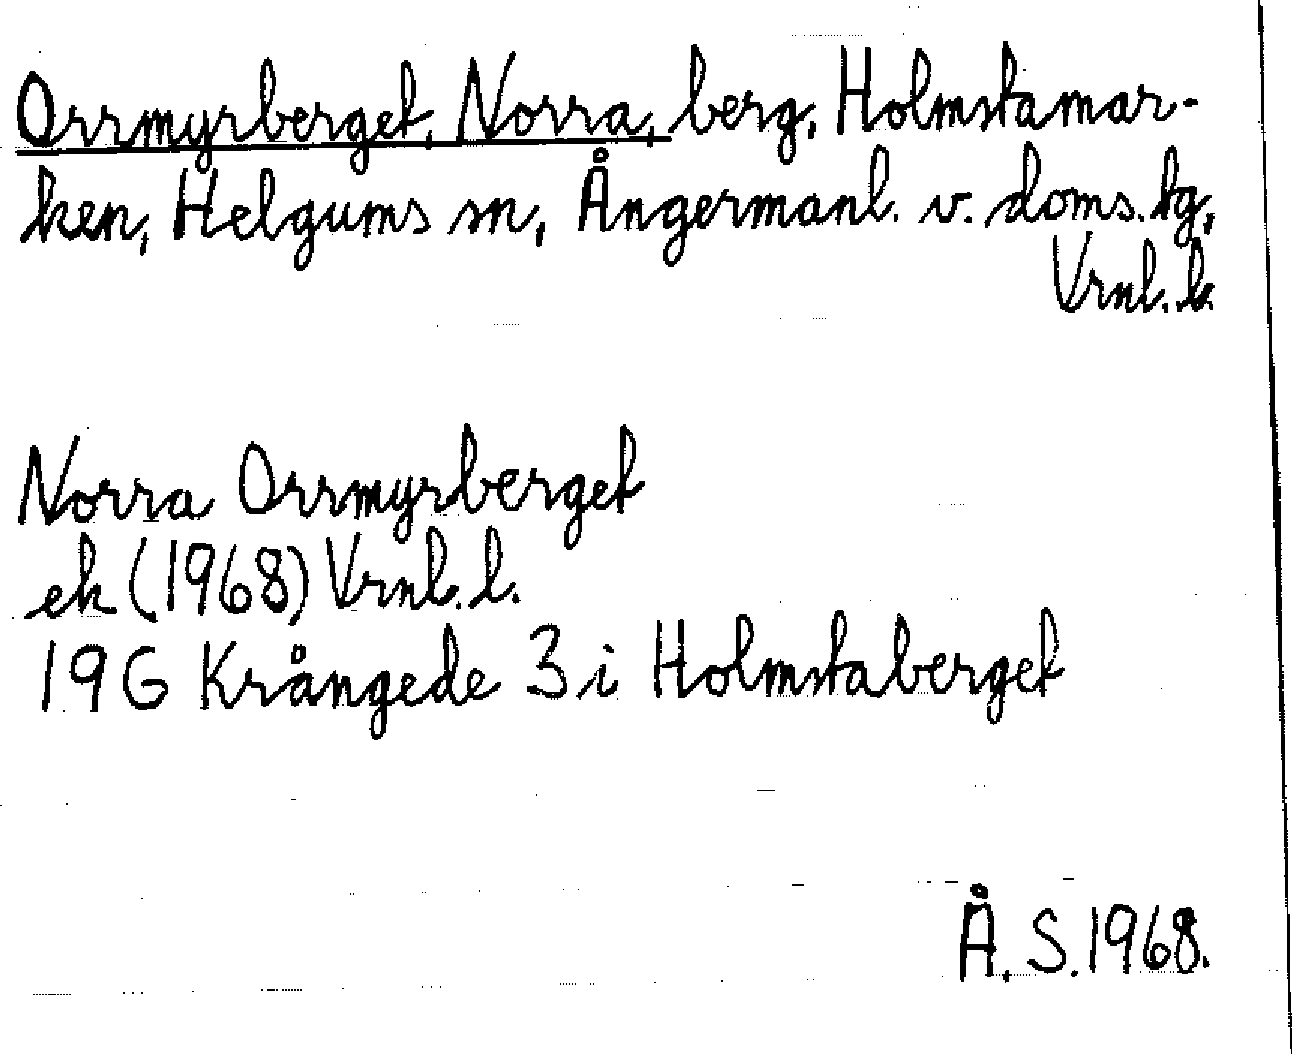 Orrmyrberget, Norra, berg, Holmstamar-
ken, Helgums sn, Ångermanl. v. doms. tg,
Vrnl. l.
Norra Orrmyrberget
ek (1968) Vrnl. l.
19G Krångede 3 i Holmstaberget
Å. S. 1968.